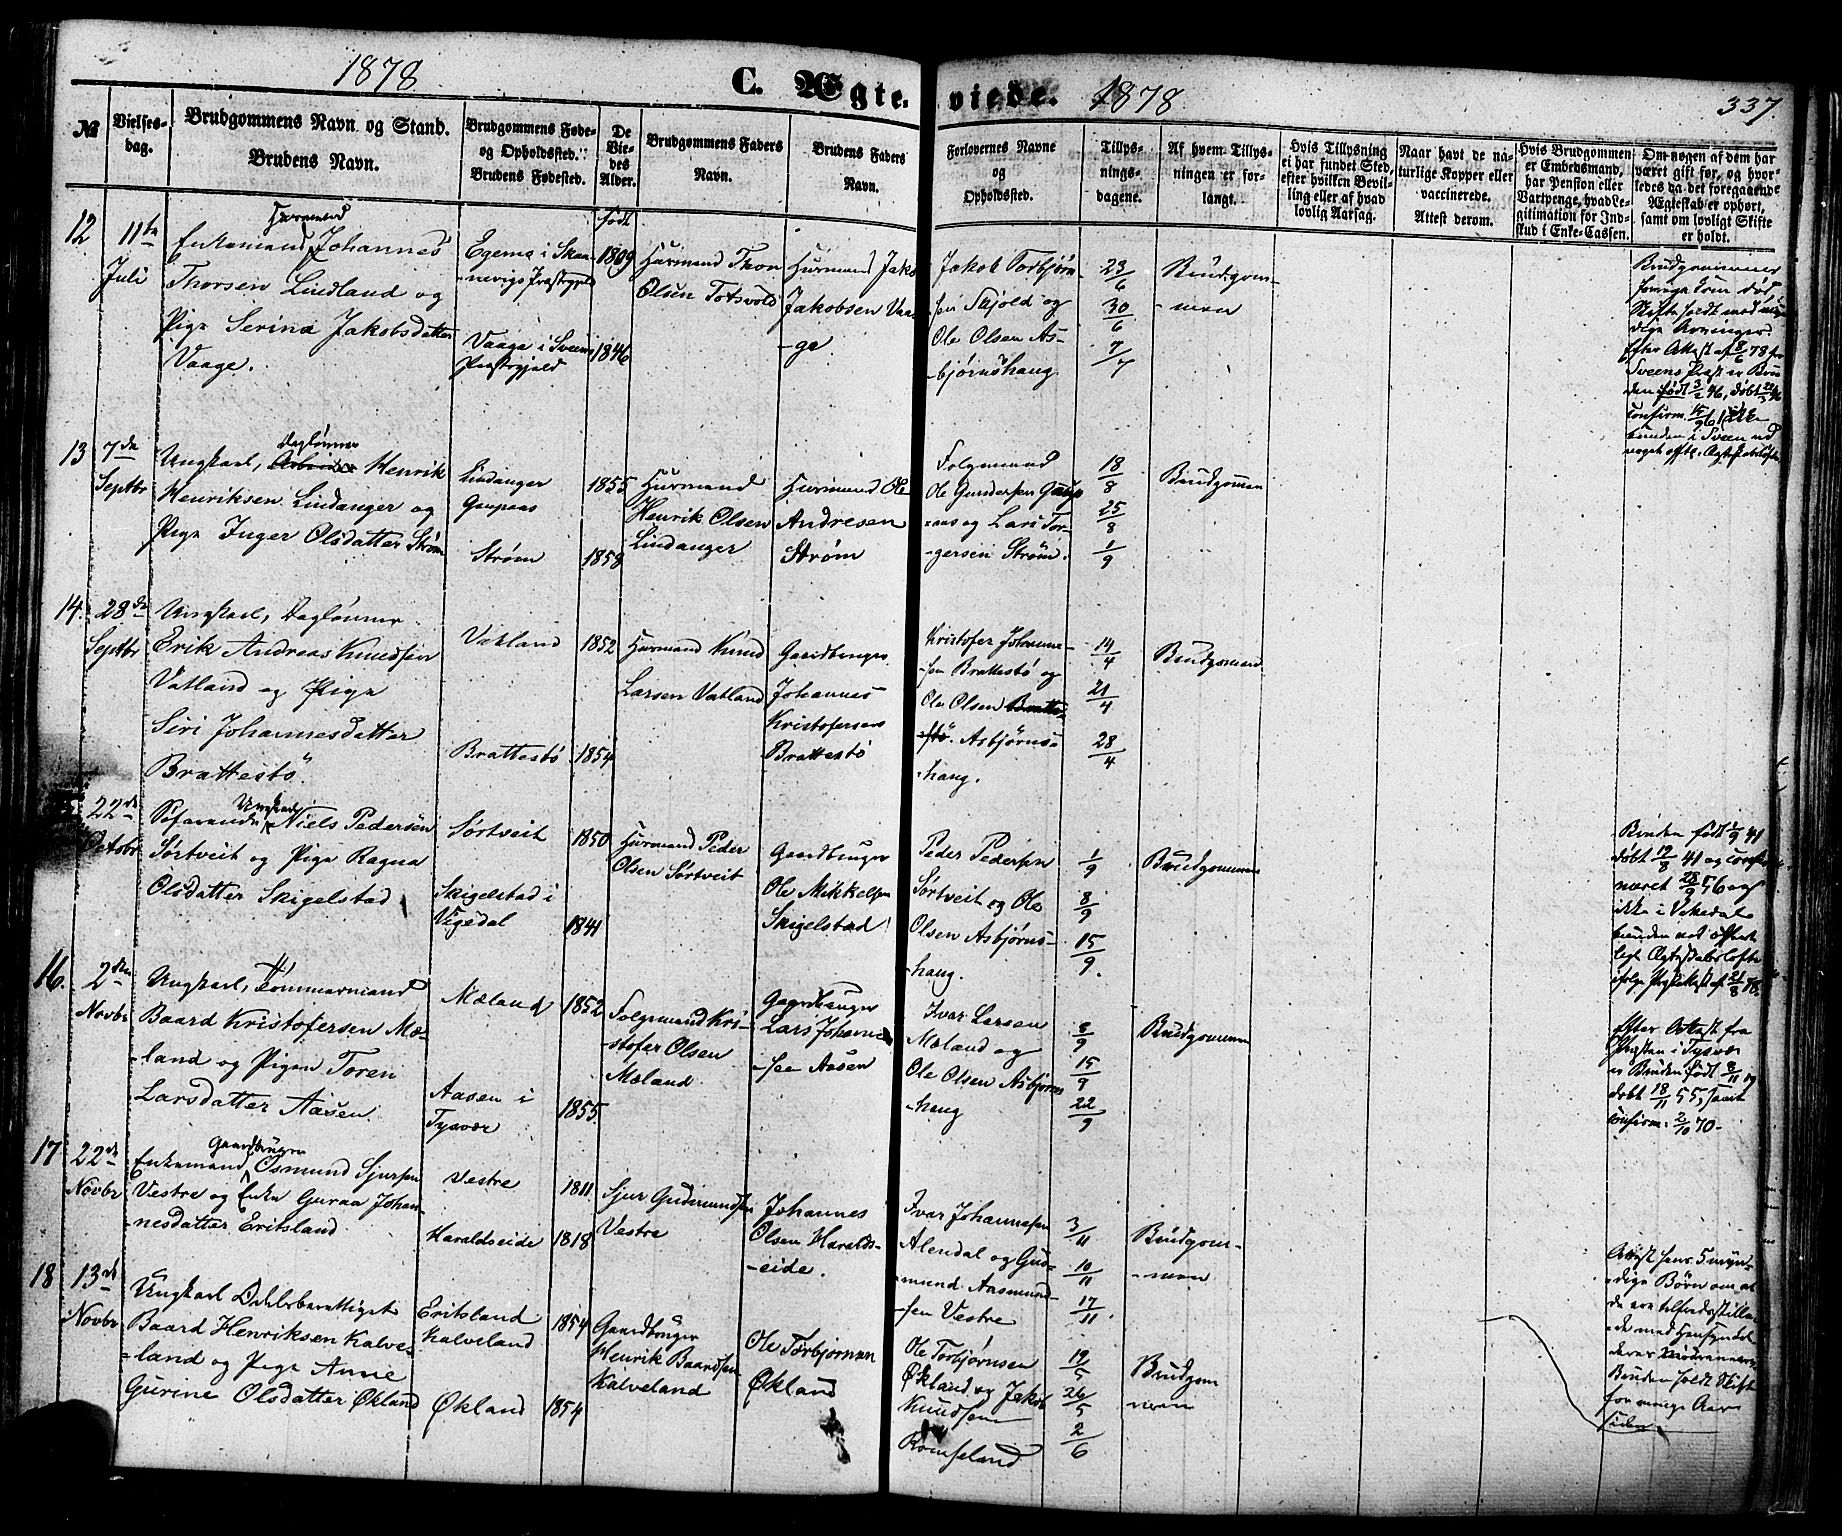 1878
C. Ægteviede.
1878
337.
№
Vielses-
dag.
Brudgommens Navn og Stand.
Brudens Navn.
Brudgommens Føde-
og Opholdssted.
Brudens Fødested.
De
Vie-
des
Alder.
Brudgommens Faders
Navn.
Brudens Faders
Navn.
Forlovernes Navne
og
Opholdssted.
Tillys-
nings-
dagene.
Af hvem Tillys-
ningen er for-
langt.
Hvis Tillysning
ei har fundet Sted,
efter hvilken Bevil-
ling eller af hvad
lovlig Aarsag.
Naar havt de na-
turlige Kopper eller
vaccinerede.
Attest derom.
Hvis Brudgommen
er Embedsmand,
har Pension eller
Vartpenge, hvad Le-
gitimation for Ind-
skud i Enke-Cassen.
Om nogen af dem har
været gift før, og hvor-
ledes da det foregaaende
Ægteskab er ophørt,
samt om lovligt Skifte
er holdt.
12
11te
Juli
Huusmand
Enkemand Johannes
Thorsen Lindland og
Pige Serina Jakobsdatter
Vaage.
Egema i Skaa-
nevigs Præstegjeld
Vaage i Sveens
Præstegjeld
født
1809
1846
Huusmand Thor
Olsen Totsvold
Huusmand Jakob
Jakobsen Vaa-
-ge
Jakob Torbjørn-
sen Skjold og
Ole Olsen As-
bjørnshaug
23/6
30/6
7/7
Brudgom-
-men
Brudgommens
Skifte holdt med myn-
dige Arvinger.
Efter Attest af 8/6 78 fra
Sveens Præst er Bru-
den født 3/2 46, døbt
confirm. 15/9 61, ikke
bunden i Sveen ved
noget offtl. Ægteskabsløfte
13
7de
Septbr
Daglønner
Ungkarl, Henrik
Henriksen Lindanger og
Pige Inger Olsdatter Strøm
Lindanger
Gaupaas
Strøm
1855
1858
Huusmand
Henrik Olsen
Lindanger
Huusmand Ole
Andresen
Strøm
Folgemand
Ole Gundersen Gaup-
aas og Lars Tor-
-gersen Strøm.
18/8
25/8
1/9
Brudgommen
14.
28de
Septbr
Ungkarl, Daglønner
Erik Andreas Knudsen
Vatland og Pige
Siri Johannesdatter
Brattestö
Vatland
Brattestö
1852
1854
Huusmand Knud
Larsen Vatland
Gaardbruger
Johannes
Kristofersen
Brattestö
Kristofer Johannes-
-sen Brattestö og
Ole Olsen Bratte-
-stö. Asbjørns-
-haug.
14/4
21/4
28/4
Brudgommen
22de
Octobr
Ungkarl
Søfarende Niels Pedersen
Sørtveit og Pige Ragna
Olsdatter Skigelstad
Sørtveit
Skigelstad i
Vigedal
1850
1841
Huusmand Peder
Olsen Sørtveit
Gaardbruger
Ole Mikkelsen
Skigelstad
Peder Pedersen
Sørtveit og Ole
Olsen Asbjørns-
-haug.
1/9
8/9
15/9.
Brudgommen
Bruden født 1/9 41
døbt 19/8 41 og confir-
meret 28/9 56 og
ikke i Vikedal
bunden ved offent-
ligt Ægteskabsløfte
ifølge Præsteattest af 21/8 78.
16.
2den
Novbr
Ungkarl, Tømmermand
Baard Kristofersen Mæ-
-land og Pigen Toren
Larsdatter Aasen.
Mæland
Aasen i
Tysvær
1852
1855.
Folgemand Kri-
-stofer Olsen
Mæland
Gaardbruger
Lars Johanne-
-sen Aasen
Ivar Larsen
Mæland og
Ole Olsen Asbjørns-
-haug
8/9
15/9
22/9
Brudgommen
Efter Attest fra
Præsten i Tysvær
er Bruden født 8/11
døbt 18/11 55, samt
confirm. 2/10 70.
17
22de
Novbr
Gaardbruger
Enkemand Osmund Sjursen
Vestre og Enke Guraa Johan-
-nesdatter Eritsland
Vestre
Haraldseide
1811.
1818
Sjur Gudmundsen
Vestre
Johannes
Olsen Haralds-
-eide.
Ivar Johannesen
Alendal og Gud-
mund Aasmund-
-sen Vestre
3/11
10/11
17/11.
Brudgom-
-men
Attest fra hans 5 myn-
-dige Børn om at
de ere tilfredsstille-
-de med Hensyn til
deres Mødrenearv.
Bruden holdt Skifte
for mange Aar
siden.
18
13de
Novbr
Ungkarl Odelsberettiget
Baard Henriksen Kalve-
-land og Pige Anne
Gurine Olsdatter Økland
Eritsland
Kalveland
Økland
1854
1854
Gaardbruger
Henrik Baardsen
Kalveland
Ole Torbjørnsen
Økland
Ole Torbjørnsen
Økland og Jakob
Knudsen
Romseland
19/5
26/5
2/6
Brudgom
-men